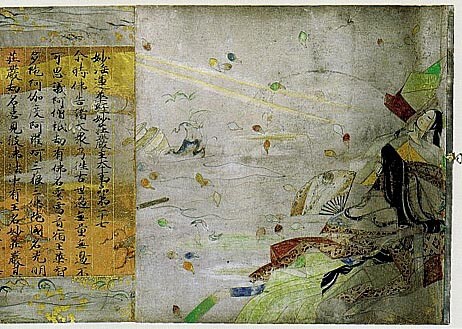 妙法蓮華經妙莊嚴王本事品第二十七
尒時佛告諸大衆乃往古世過無量無邊不
可思議阿僧祇劫有佛名雲雷音宿王華智
多陀阿伽度阿羅訶三藐三佛陀國名光明
莊嚴劫名喜見彼佛法中有王名妙莊嚴其